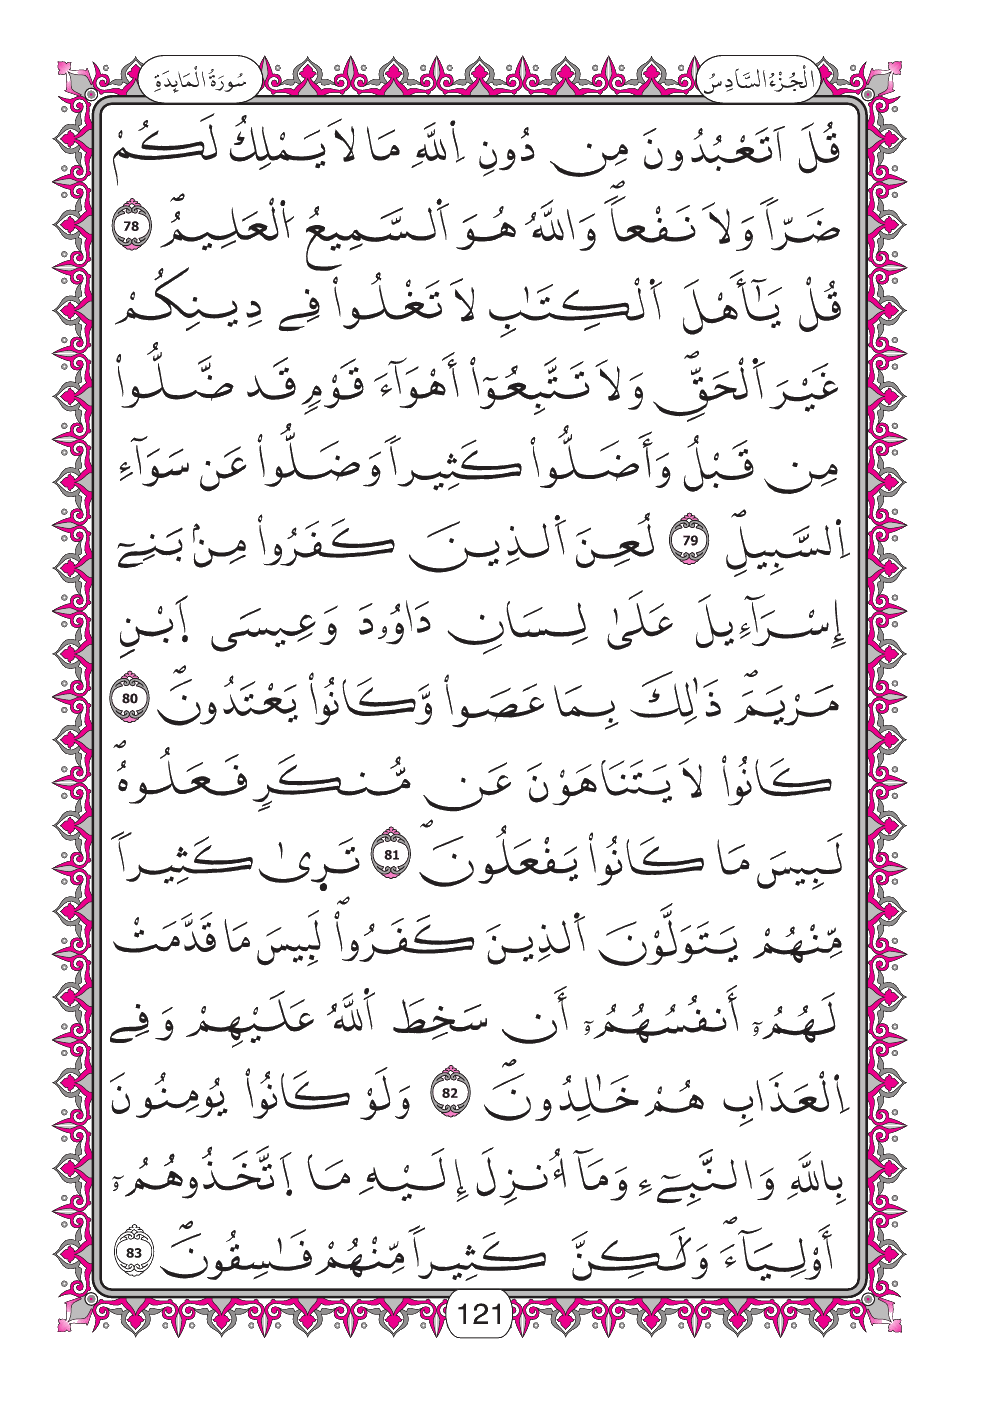 الْجُزْءُ السَّادِسُ سُورَةُ الْمَائِدَةِ
قُلَ اَتَعْبُدُونَ مِن دُونِ اِ۬للَّهِ مَا لاَ يَمْلِكُ لَكُمْ
ضَرّاٗ وَلاَ نَفْعاٗۖ وَاللَّهُ هُوَ اَ۬لسَّمِيعُ اُ۬لْعَلِيمُۖ 78
قُلْ يَٰٓأَهْلَ اَ۬لْكِتَٰبِ لاَ تَغْلُواْ فِے دِينِكُمْ
غَيْرَ اَ۬لْحَقِّۖ وَلاَ تَتَّبِعُوٓاْ أَهْوَآءَ قَوْمٖ قَد ضَّلُّواْ
مِن قَبْلُ وَأَضَلُّواْ كَثِيراٗ وَضَلُّواْ عَن سَوَآءِ
اِ۬لسَّبِيلِۖ 79 لُعِنَ اَ۬لذِينَ كَفَرُواْ مِنۢ بَنِےٓ
إِسْرَآءِيلَ عَلَىٰ لِسَانِ دَاوُۥدَ وَعِيسَى اَ۪بْنِ
مَرْيَمَۖ ذَٰلِكَ بِمَا عَصَواْ وَّكَانُواْ يَعْتَدُونَۖ 80
كَانُواْ لاَ يَتَنَاهَوْنَ عَن مُّنكَرٖ فَعَلُوهُۖ
لَبِيسَ مَا كَانُواْ يَفْعَلُونَۖ 81 تَر۪ىٰ كَثِيراٗ
مِّنْهُمْ يَتَوَلَّوْنَ اَ۬لذِينَ كَفَرُواْۖ لَبِيسَ مَا قَدَّمَتْ
لَهُمُۥٓ أَنفُسُهُمُۥٓ أَن سَخِطَ اَ۬للَّهُ عَلَيْهِمْ وَفِے
اِ۬لْعَذَابِ هُمْ خَٰلِدُونَۖ 82 وَلَوْ كَانُواْ يُومِنُونَ
بِاللَّهِ وَالنَّبِےٓءِ وَمَآ أُنزِلَ إِلَيْهِ مَا اَ۪تَّخَذُوهُمُۥٓ
أَوْلِيَآءَۖ وَلَٰكِنَّ كَثِيراٗ مِّنْهُمْ فَٰسِقُونَۖ 83
121